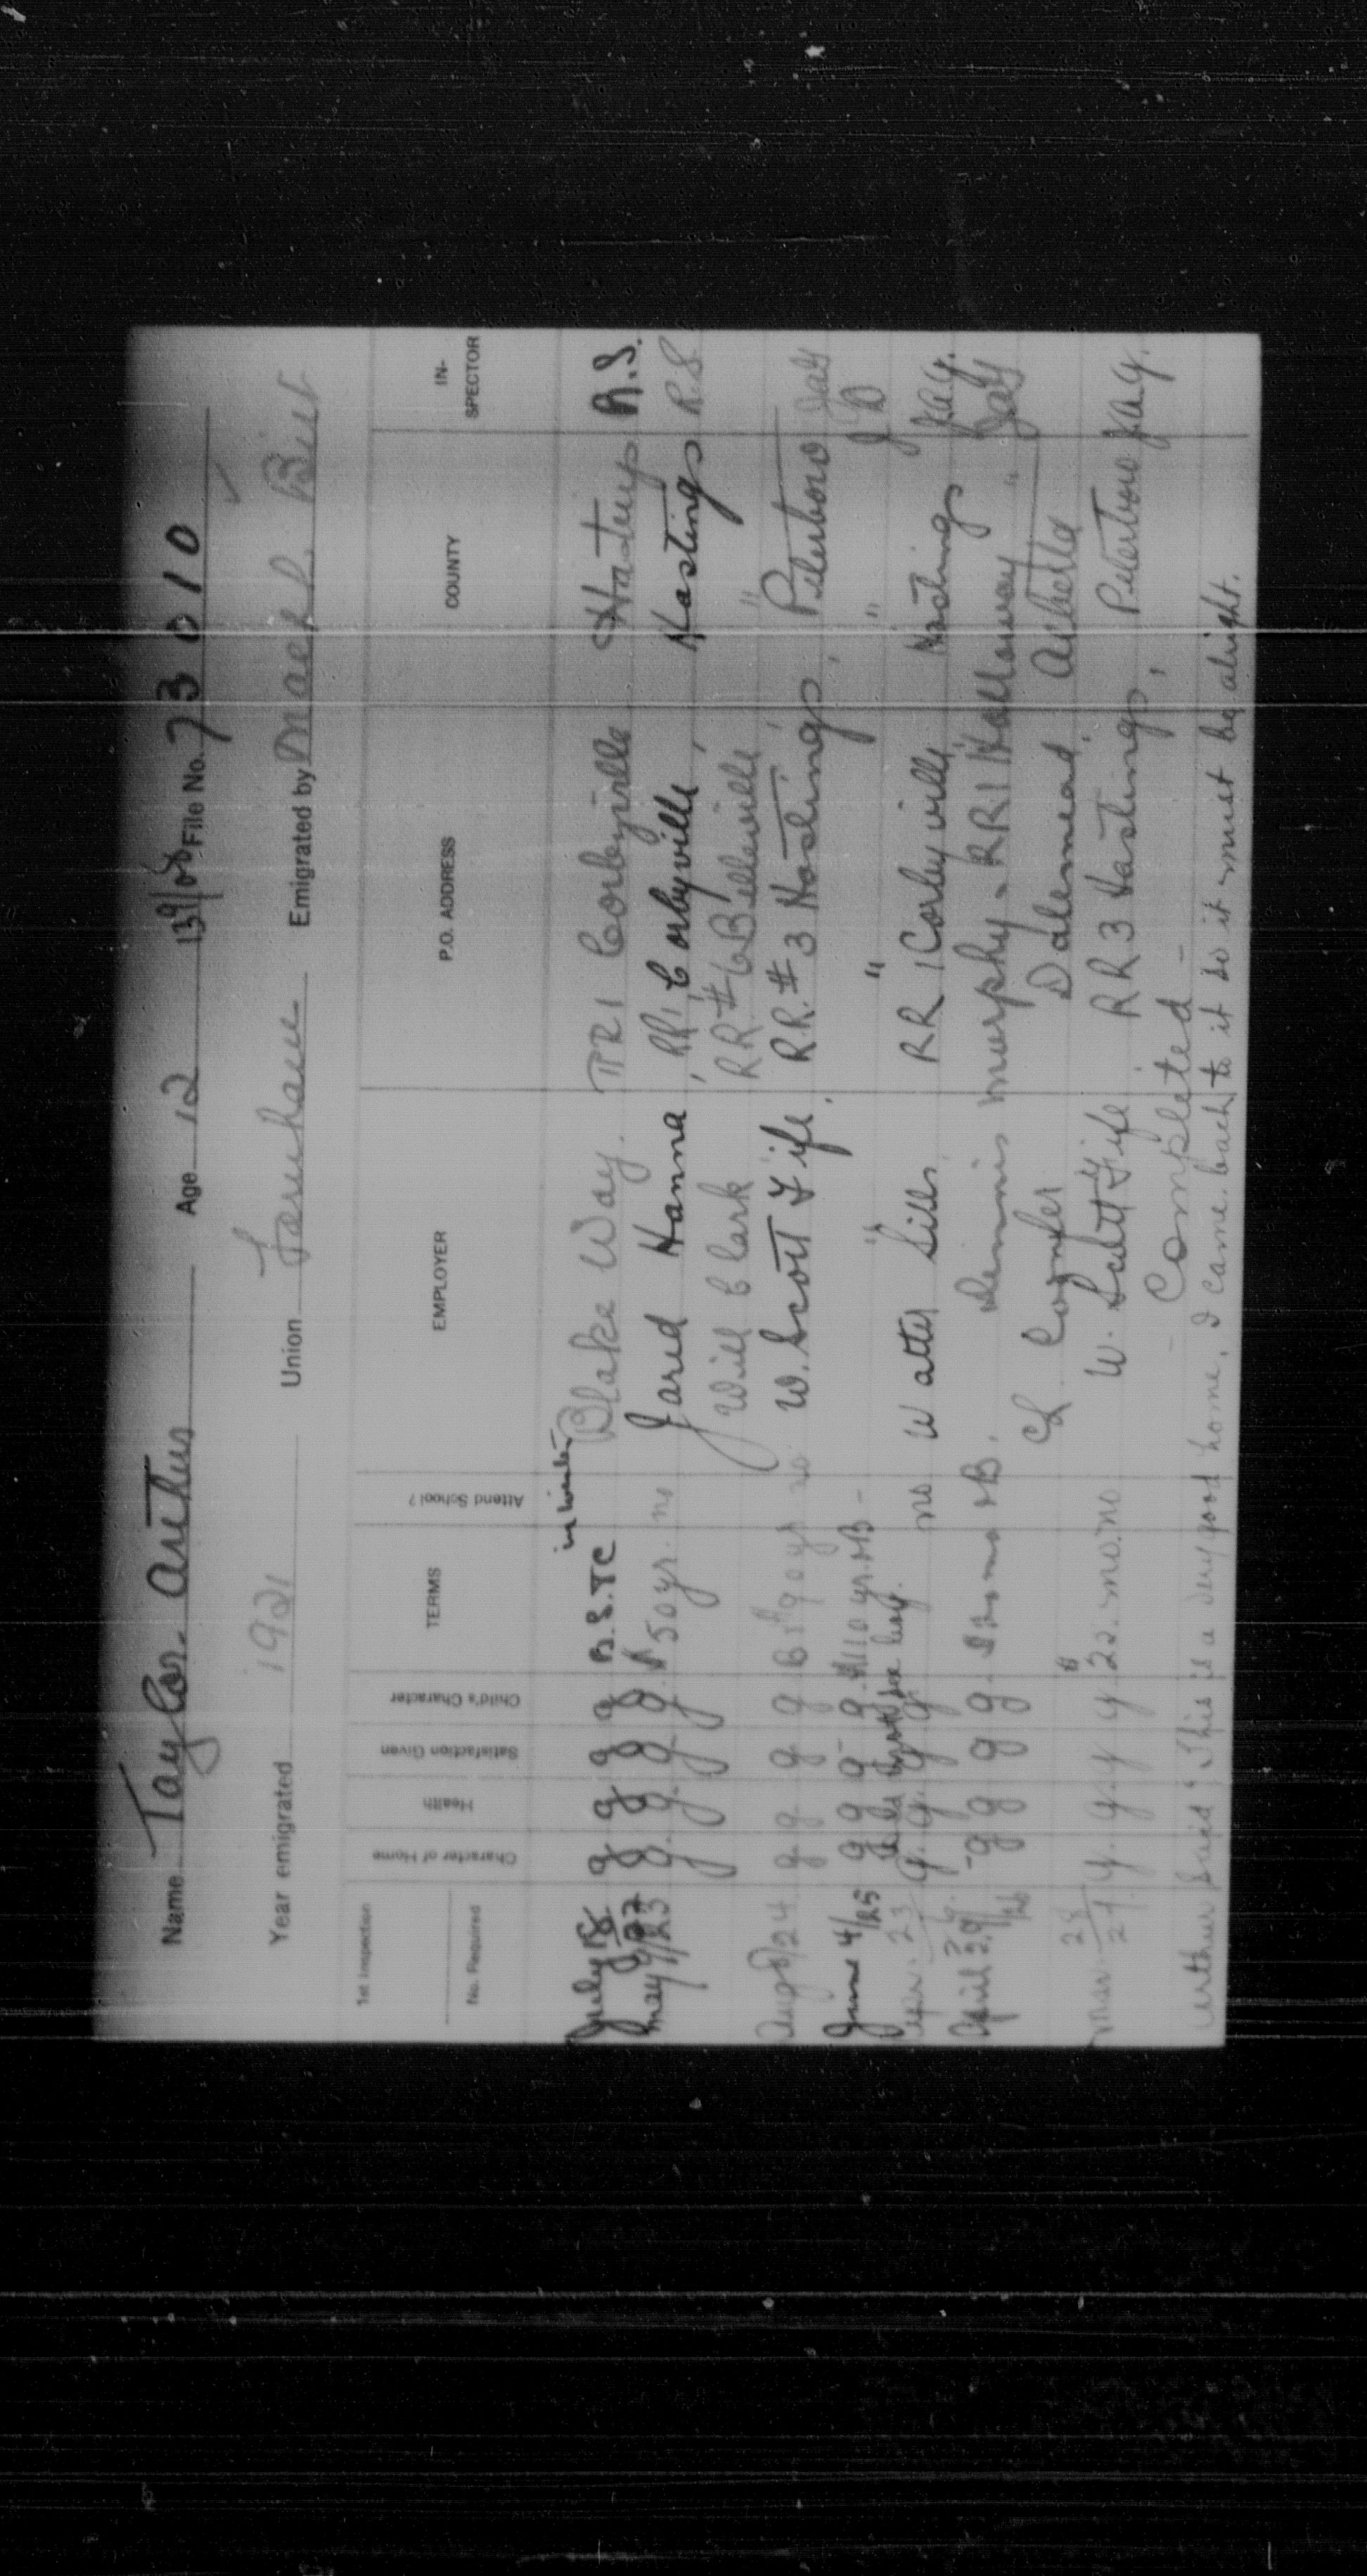 Name Taylor. Arthur Age 12 File No. 73010
Year emigrated 1921 Union Farnham Emigrated by
1st Inspection
No. Required
Character of Home
Health
Satisfaction Given
Child's Character
TERMS
Attend School?
EMPLOYER
P.O. ADDRESS
COUNTY
IN-SPECTOR
in winter
July g g g g B.S.TC Blake Way. RR1 Corbyville Hastings R.S.
May 9/23 g. g. g. g. 50 yr. no Jared Hanna, RR1, Corbyville, Hastings R.S.
Will Clark RR#6 Belleville "
Aug 24 g g g g 90 yr no W. Scott Fife, RR.#3 Hastings, Peterboro JAG
June 4/25 g g g g 110 yr. " " "
g. g. g. g. no Walter Sills RR 1 Corbyville Hastings JAG.
April 29/26 g g g g mo Dennis Murphy - RR1 Halloway " JAG
Ch Dalemead, Alberta
Mar 28/27 g. g. g g 22. mo. no W. Scott Fife RR3 Hastings, Peterboro JAG.
- Completed -
Arthur said "This is a very good home, I came back to it so it must be alright.